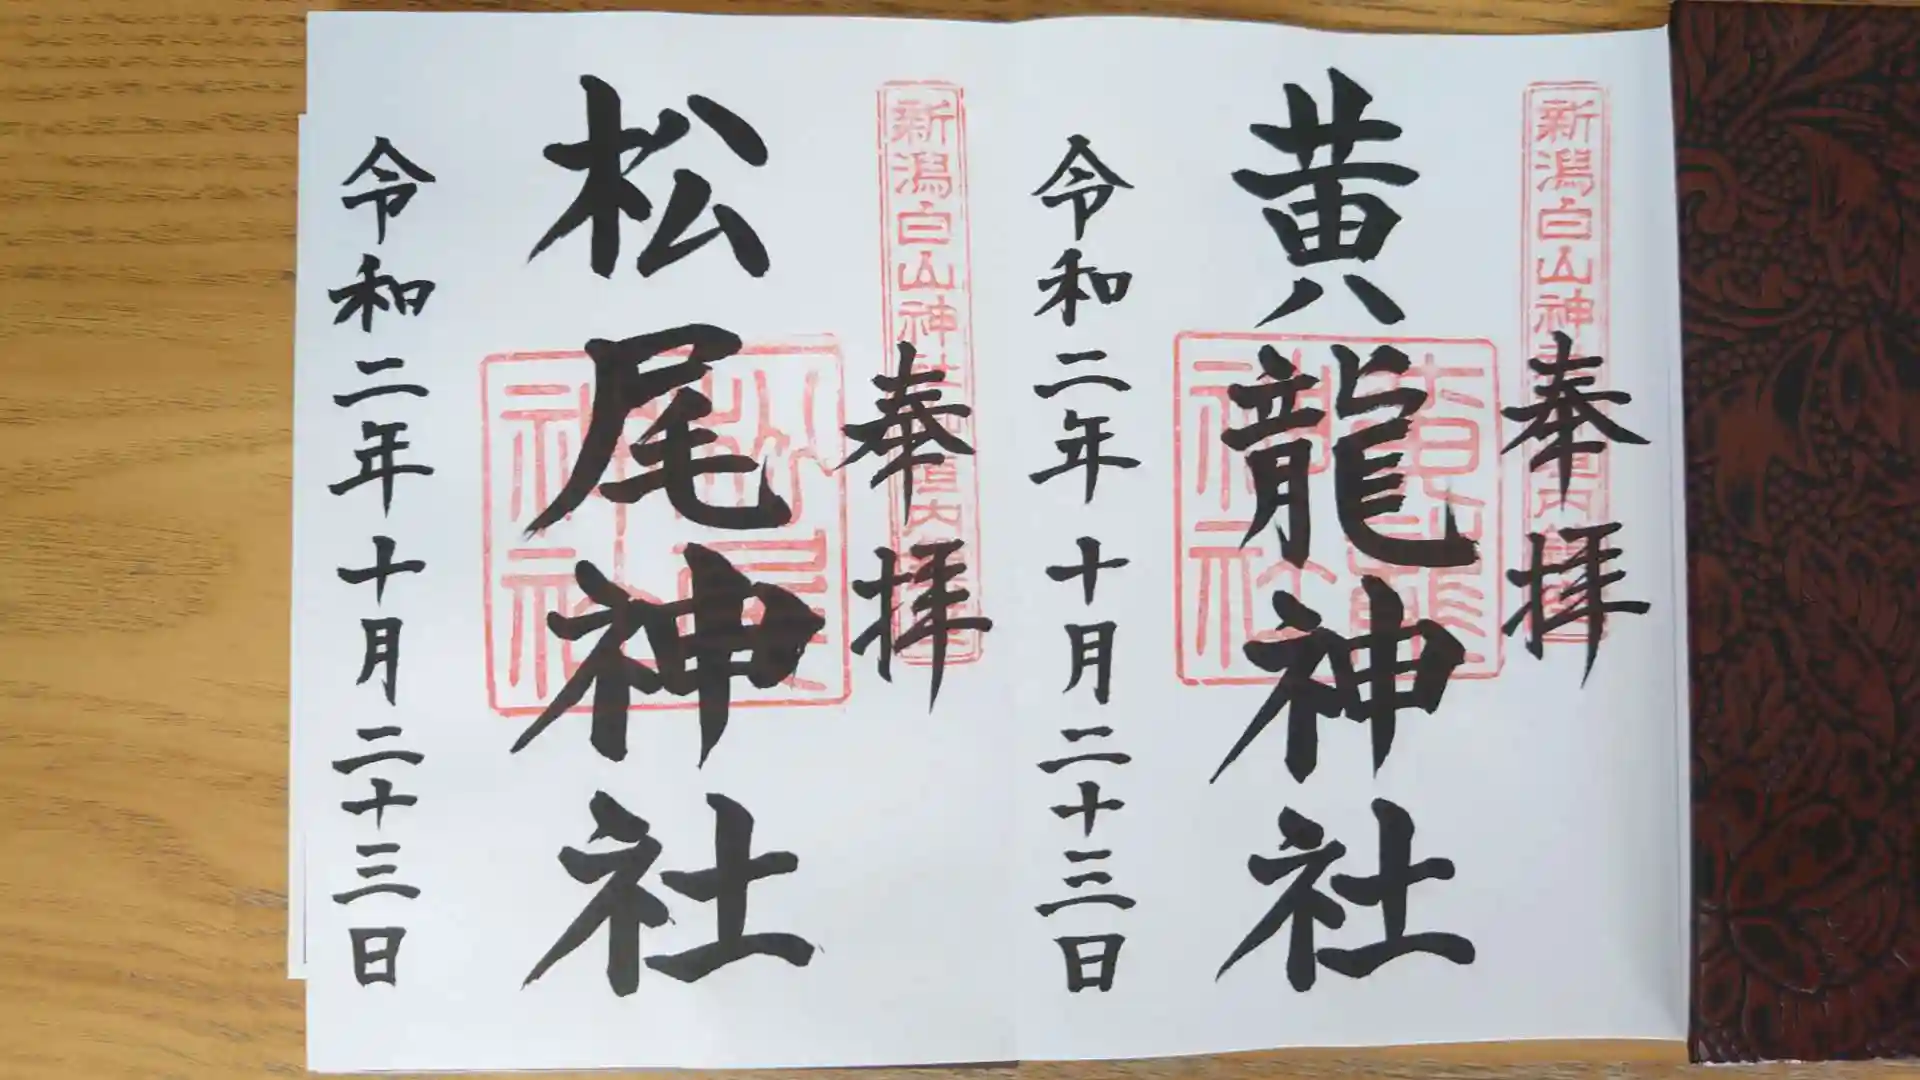 新潟白山神
奉拝
黄龍神社
令和二年十月二十三日
新潟白山神社
奉拝
松尾神社
令和二年十月二十三日
松尾
神社